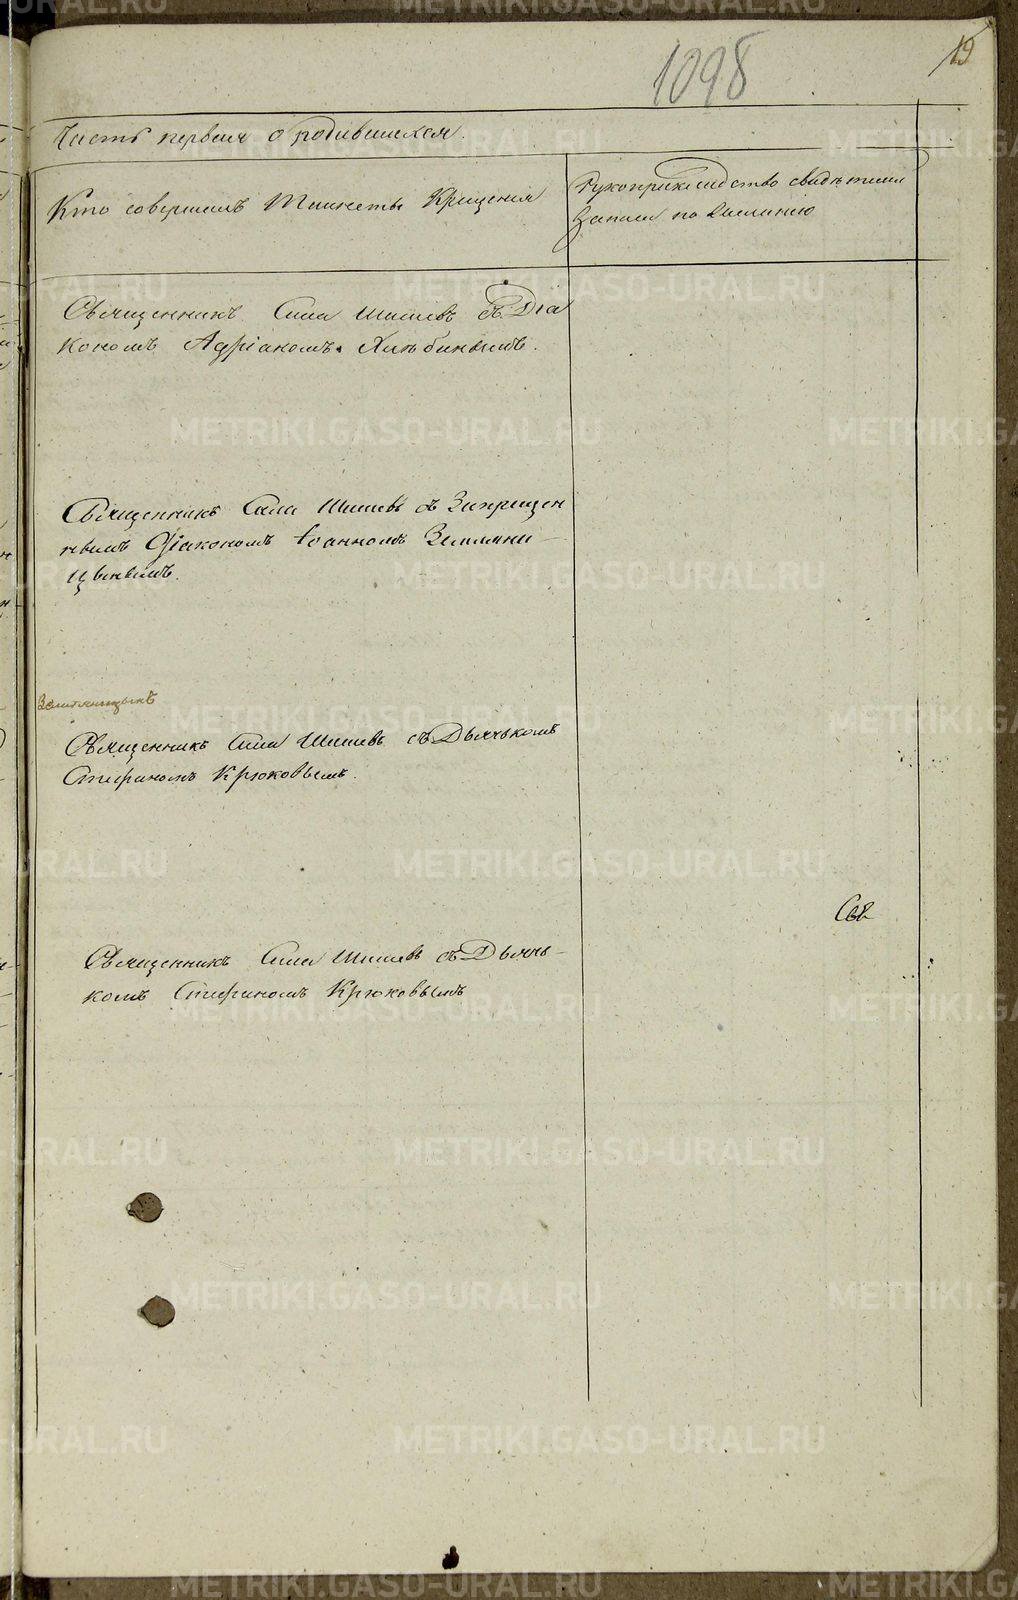 1098
19
Часть первая о родившихся.
Кто совершалъ Таинство Крещения
Рукоприкладство свидѣтелей
записи по желанию
Священникъ Сила Шишевъ съ Діа
кономъ Адріаномъ Хлѣбинымъ.
Священникъ Сила Шишевъ съ Запрещен
нымъ Діакономъ Іоанномъ Земляни-
цынымъ.
Земляницынъ
Священникъ Сила Шишевъ съ Дьячькомъ
Стефаномъ Крюковымъ.
Свя
Священникъ Сила Шишевъ съ Дьячь-
комъ Стефаномъ Крюковымъ
METRIKI.GASO-URAL.RU